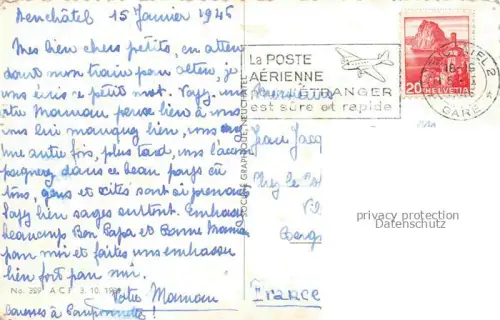 Neuchâtel 15 Janvier 1946
Mes bien chers petits, en atten
dant mon train pour olten, je
vous écris ce petit mot. Voyez, ma
Maman pense bien à vous
vous lui manquez bien,
une autre fois, plus tard, vous l'accom
pagnerez dans ce beau pays où
tous, gens et cités sont si prenant
Soyez bien sages surtout. Embrassez
beaucoup Bon Papa et Bonne Maman
pour moi et faites vous embrasser
bien fort par moi.
No. 329 A C F 3. 10. 19
Votre Maman
Caresses à Pomponnette!
SOCIÉTÉ GRAPHIQUE, NEUCHÂTEL
La POSTE
AÉRIENNE
ÉTRANGER
est sûre et rapide
20 HELVETIA
GARE
Monsieur
Jean Jacq
Chez le
Vil
Berg
France
privacy protection
Datenschutz